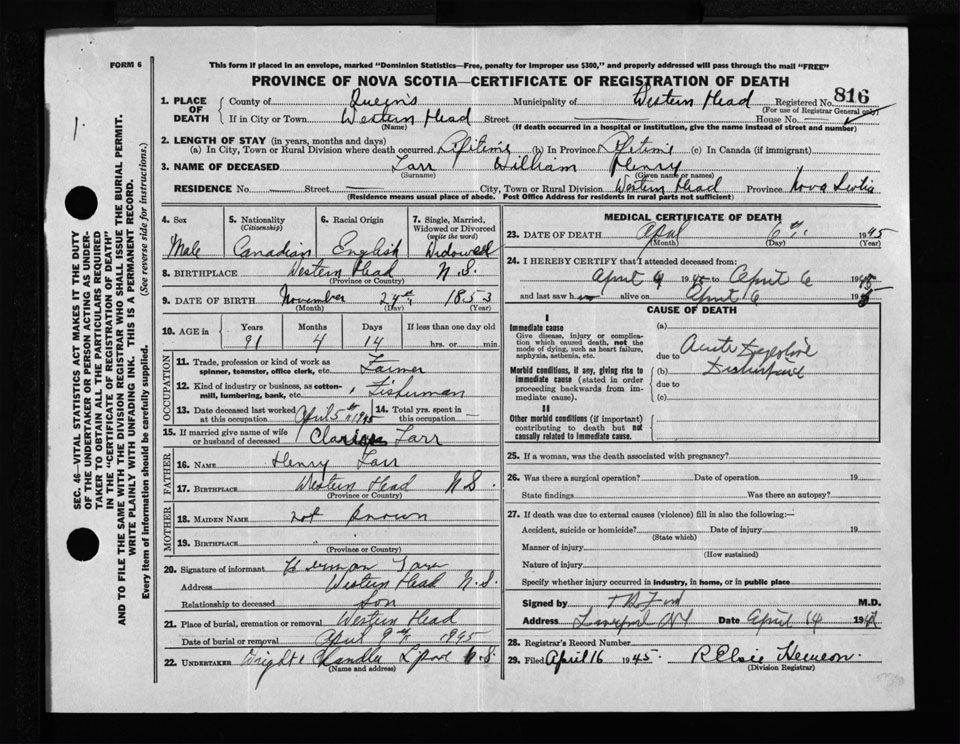 FORM 6
This form if placed in an envelope, marked "Dominion Statistics—Free, penalty for improper use $300," and properly addressed will pass through the mail "FREE"
PROVINCE OF NOVA SCOTIA—CERTIFICATE OF REGISTRATION OF DEATH
1. PLACE OF DEATH
County of Queen's Municipality of Western Head Registered No. 816
(For use of Registrar General only)
If in City or Town Western Head Street House No.
(Name) (If death occurred in a hospital or institution, give the name instead of street and number)
2. LENGTH OF STAY (in years, months and days)
(a) In City, Town or Rural Division where death occurred Lifetime (b) In Province Lifetime (c) In Canada (if immigrant)
3. NAME OF DECEASED Tarr William Henry
(Surname) (Given name or names)
RESIDENCE No. Street City, Town or Rural Division Western Head Province Nova Scotia
(Residence means usual place of abode. Post Office Address for residents in rural parts not sufficient)
4. Sex
Male
5. Nationality
(Citizenship)
Canadian
6. Racial Origin
English
7. Single, Married, Widowed or Divorced
(write the word)
Widowed
8. BIRTHPLACE Western Head N.S.
(Province or Country)
9. DATE OF BIRTH November 24th 1853
(Month) (Day) (Year)
10. AGE in
Years Months Days If less than one day old
91 4 14 hrs. or min.
OCCUPATION
11. Trade, profession or kind of work as spinner, teamster, office clerk, etc. Farmer
12. Kind of industry or business, as cotton-mill, lumbering, bank, etc. Fisherman
13. Date deceased last worked at this occupation April 5th 1945
14. Total yrs. spent in this occupation
15. If married give name of wife or husband of deceased Tarr
FATHER
16. NAME Henry Tarr
17. BIRTHPLACE Western Head N.S.
(Province or Country)
MOTHER
18. MAIDEN NAME not known
19. BIRTHPLACE "
(Province or Country)
20. Signature of informant Herman Tarr
Address Western Head N.S.
Relationship to deceased Son
21. Place of burial, cremation or removal Western Head
Date of burial or removal April 9th 1945
22. UNDERTAKER Wright & Chandler L'pool N.S.
(Name and address)
MEDICAL CERTIFICATE OF DEATH
23. DATE OF DEATH April 6th 1945
(Month) (Day) (Year)
24. I HEREBY CERTIFY that I attended deceased from:
April 4 1945 to April 6 1945
and last saw h alive on April 6 1945
CAUSE OF DEATH
I
Immediate cause
Give disease, injury or complication which caused death, not the mode of dying, such as heart failure, asphyxia, asthenia, etc.
Morbid conditions, if any, giving rise to immediate cause (stated in order proceeding backwards from immediate cause).
II
Other morbid conditions (if important) contributing to death but not causally related to immediate cause.
(a)
due to Acute
(b)
due to
(c)
25. If a woman, was the death associated with pregnancy?
26. Was there a surgical operation? Date of operation 19
State findings Was there an autopsy?
27. If death was due to external causes (violence) fill in also the following:—
Accident, suicide or homicide? Date of injury 19
(State which)
Manner of injury
(How sustained)
Nature of injury
Specify whether injury occurred in industry, in home, or in public place
Signed by M.D.
Address Liverpool NS Date April 14 194
28. Registrar's Record Number
29. Filed April 16 1945 R Elsie Hemeon.
(Division Registrar)
SEC. 46—VITAL STATISTICS ACT MAKES IT THE DUTY
OF THE UNDERTAKER OR PERSON ACTING AS UNDER-
TAKER TO OBTAIN ALL THE PARTICULARS REQUIRED
IN THE "CERTIFICATE OF REGISTRATION OF DEATH"
AND TO FILE THE SAME WITH THE DIVISION REGISTRAR WHO SHALL ISSUE THE BURIAL PERMIT.
WRITE PLAINLY WITH UNFADING INK. THIS IS A PERMANENT RECORD.
Every item of information should be carefully supplied. (See reverse side for instructions.)
1.